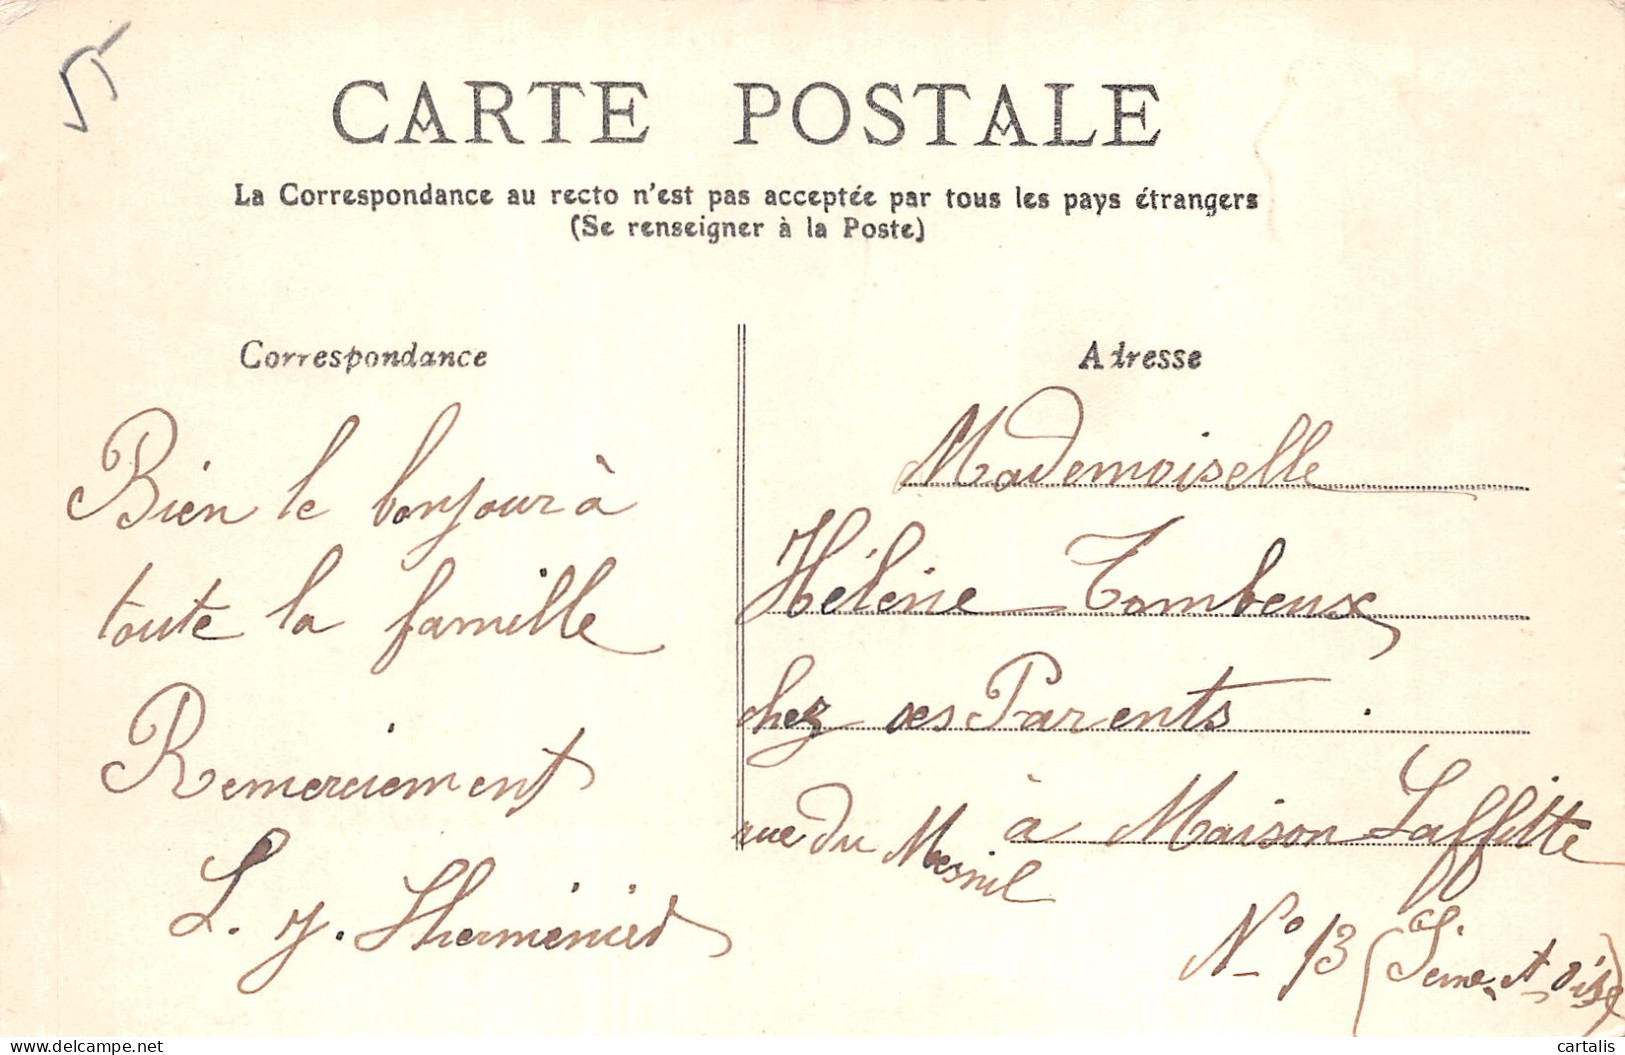 55
CARTE POSTALE
La Correspondance au recto n'est pas acceptée par tous les pays étrangers
(Se renseigner à la Poste)
Correspondance
Bien le bonjour à
toute la famille
Remerciement
L. J.
Adresse
Mademoiselle
Hélène Tombeux
chez ses Parents
rue du Mesnil à Maison Laffitte
N° 13 (Seine et Oise)
www.delcampe.net
cartalis